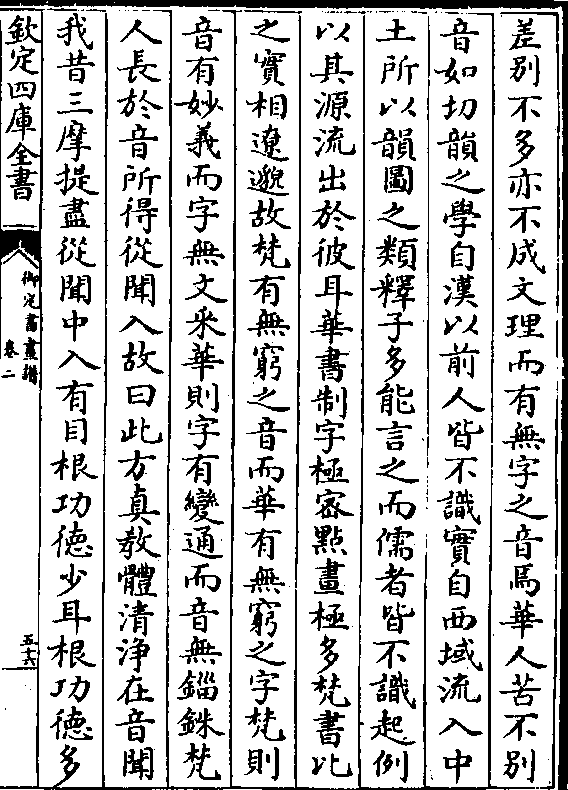 差别不多亦不成文理而有無字之音焉華人苦不别
音如切韻之學自漢以前人皆不識實自西域流入中
土所以韻圖之類釋子多能言之而儒者皆不識起例
以其源流出於彼耳華書制字極密點畫極多梵書比
之實相遼邈故梵有無窮之音而華有無窮之字梵則
音有妙義而字無文采華則字有變通而音無錙銖梵
人長於音所得從聞入故曰此方真教體清淨在音聞
我昔三摩提盡從聞中入有目根功徳少耳根功徳多
欽定四庫全書
御定書畫譜
卷二
五十六